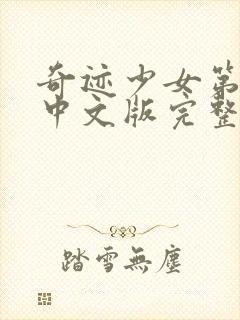 奇迹少女第
中文版完整
踏雪無塵